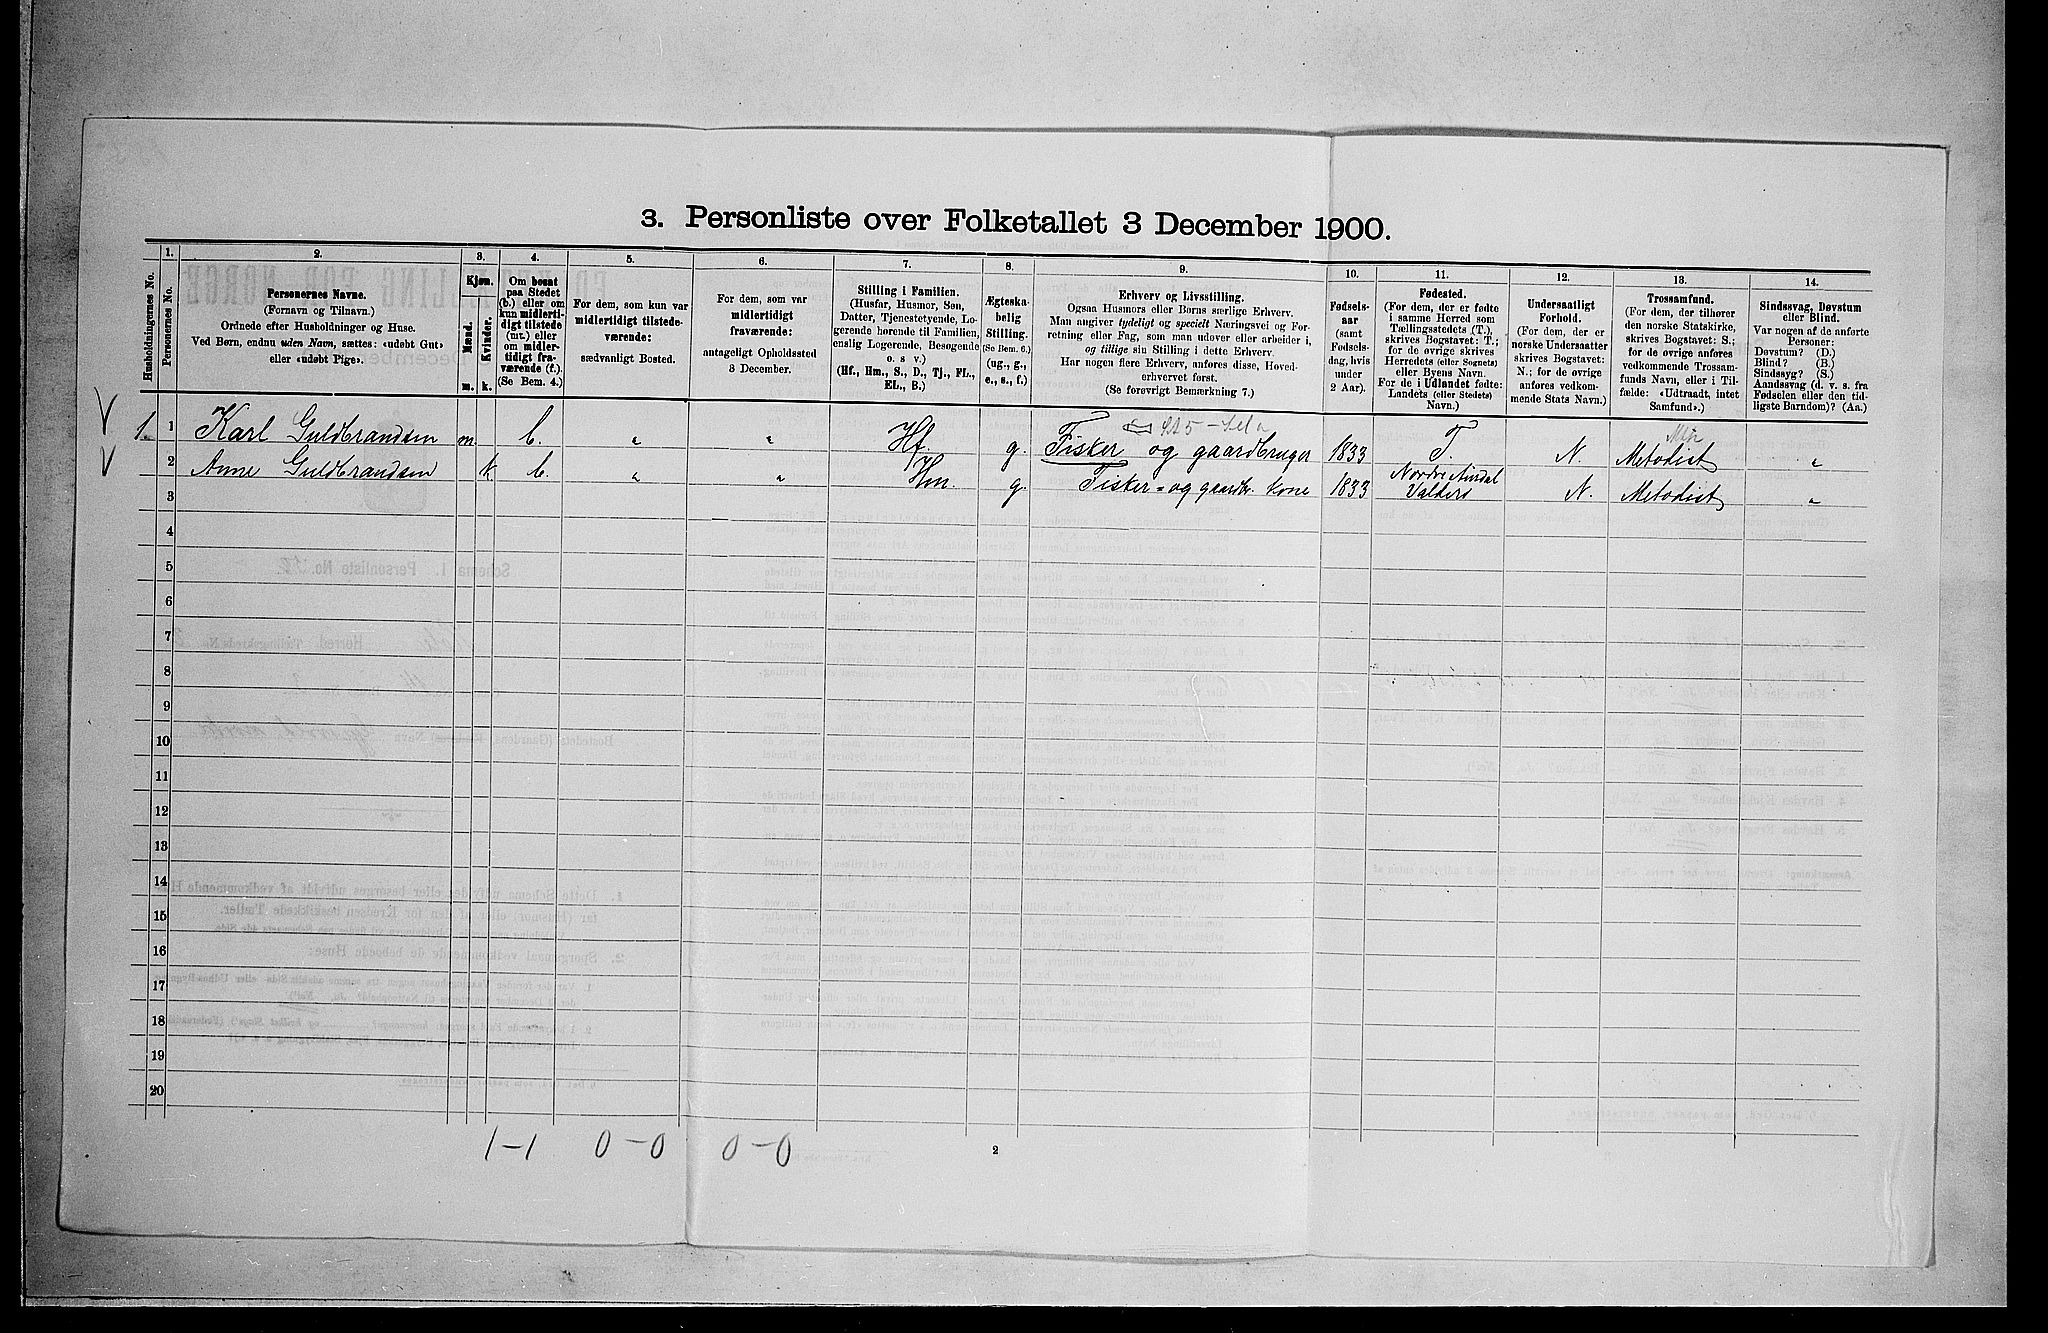 3. Personliste over Folketallet 3 December 1900.
Husholdningernes No.
1.
Personernes No.
2.
Personernes Navne.
(Fornavn og Tilnavn.)
Ordnede efter Husholdninger og Huse.
Ved Børn, endnu uden Navn, sættes: «udøbt Gut»
eller «udøbt Pige».
3.
Kjøn.
Mænd.
Kvinder.
m.
k.
4.
Om bosat
paa Stedet
(b.) eller om
kun midlerti-
digt tilstede
(mt.) eller
om midler-
tidigt fra-
værende (f.).
(Se Bem. 4.)
5.
For dem, som kun var
midlertidigt tilstede-
værende:
sædvanligt Bosted.
6.
For dem, som var
midlertidigt
fraværende:
antageligt Opholdssted
3 December.
7.
Stilling i Familien.
(Husfar, Husmor, Søn,
Datter, Tjenestetyende, Lo-
gerende hørende til Familien,
enslig Logerende, Besøgende
o. s v.)
(Hf., Hm., S., D., Tj., FL.,
EL., B.)
8.
Ægteska-
belig
Stilling.
(Se Bem. 6.)
(ug., g.,
e., s., f.)
9.
Erhverv og Livsstilling.
Ogsaa Husmors eller Børns særlige Erhverv.
Man angiver tydeligt og specielt Næringsvei og For-
retning eller Fag, som man udøver eller arbeider i,
og tillige sin Stilling i dette Erhverv.
Har nogen flere Erhverv, anføres disse, Hoved-
erhvervet først.
(Se forøvrigt Bemærkning 7.)
10.
Fødsels-
aar
(samt
Fødsels-
dag, hvis
under
2 Aar).
11.
Fødested.
(For dem, der er fødte
i samme Herred som
Tællingsstedets (T.),
skrives Bogstavet: T.;
for de øvrige skrives
Herredets (eller Sognets)
eller Byens Navn.
For de i Udlandet fødte:
Landets (eller Stedets)
Navn.)
12.
Undersaatligt
Forhold.
(For dem, der er
norske Undersaatter
skrives Bogstavet:
N.; for de øvrige
anføres vedkom-
mende Stats Navn.)
13.
Trossamfund.
(For dem, der tilhører
den norske Statskirke,
skrives Bogstavet: S.;
for de øvrige anføres
vedkommende Trossam-
funds Navn, eller i Til-
fælde: «Udtraadt, intet
Samfund».)
14.
Sindssvag, Døvstum
eller Blind.
Var nogen af de anførte
Personer:
Døvstum? (D.)
Blind? (B.)
Sindssyg? (S.)
Aandssvag (d. v. s. fra
Fødselen eller den tid-
ligste Barndom)? (Aa.)
1. 1 Karl Guldbrandsen m. b. " " Hf. g. Fisker og gaardbruger 1833 T. N. Metodist "
2 Anne Guldbrandsen k b. " " Hm. g. Fisker- og gaardbr. kone 1833 Nordre Aurdal
Valders N. Metodist "
3
4
5
6
7
8
9
10
11
12
13
14
15
16
17
18
19
20
1-1 0-0 0-0
2